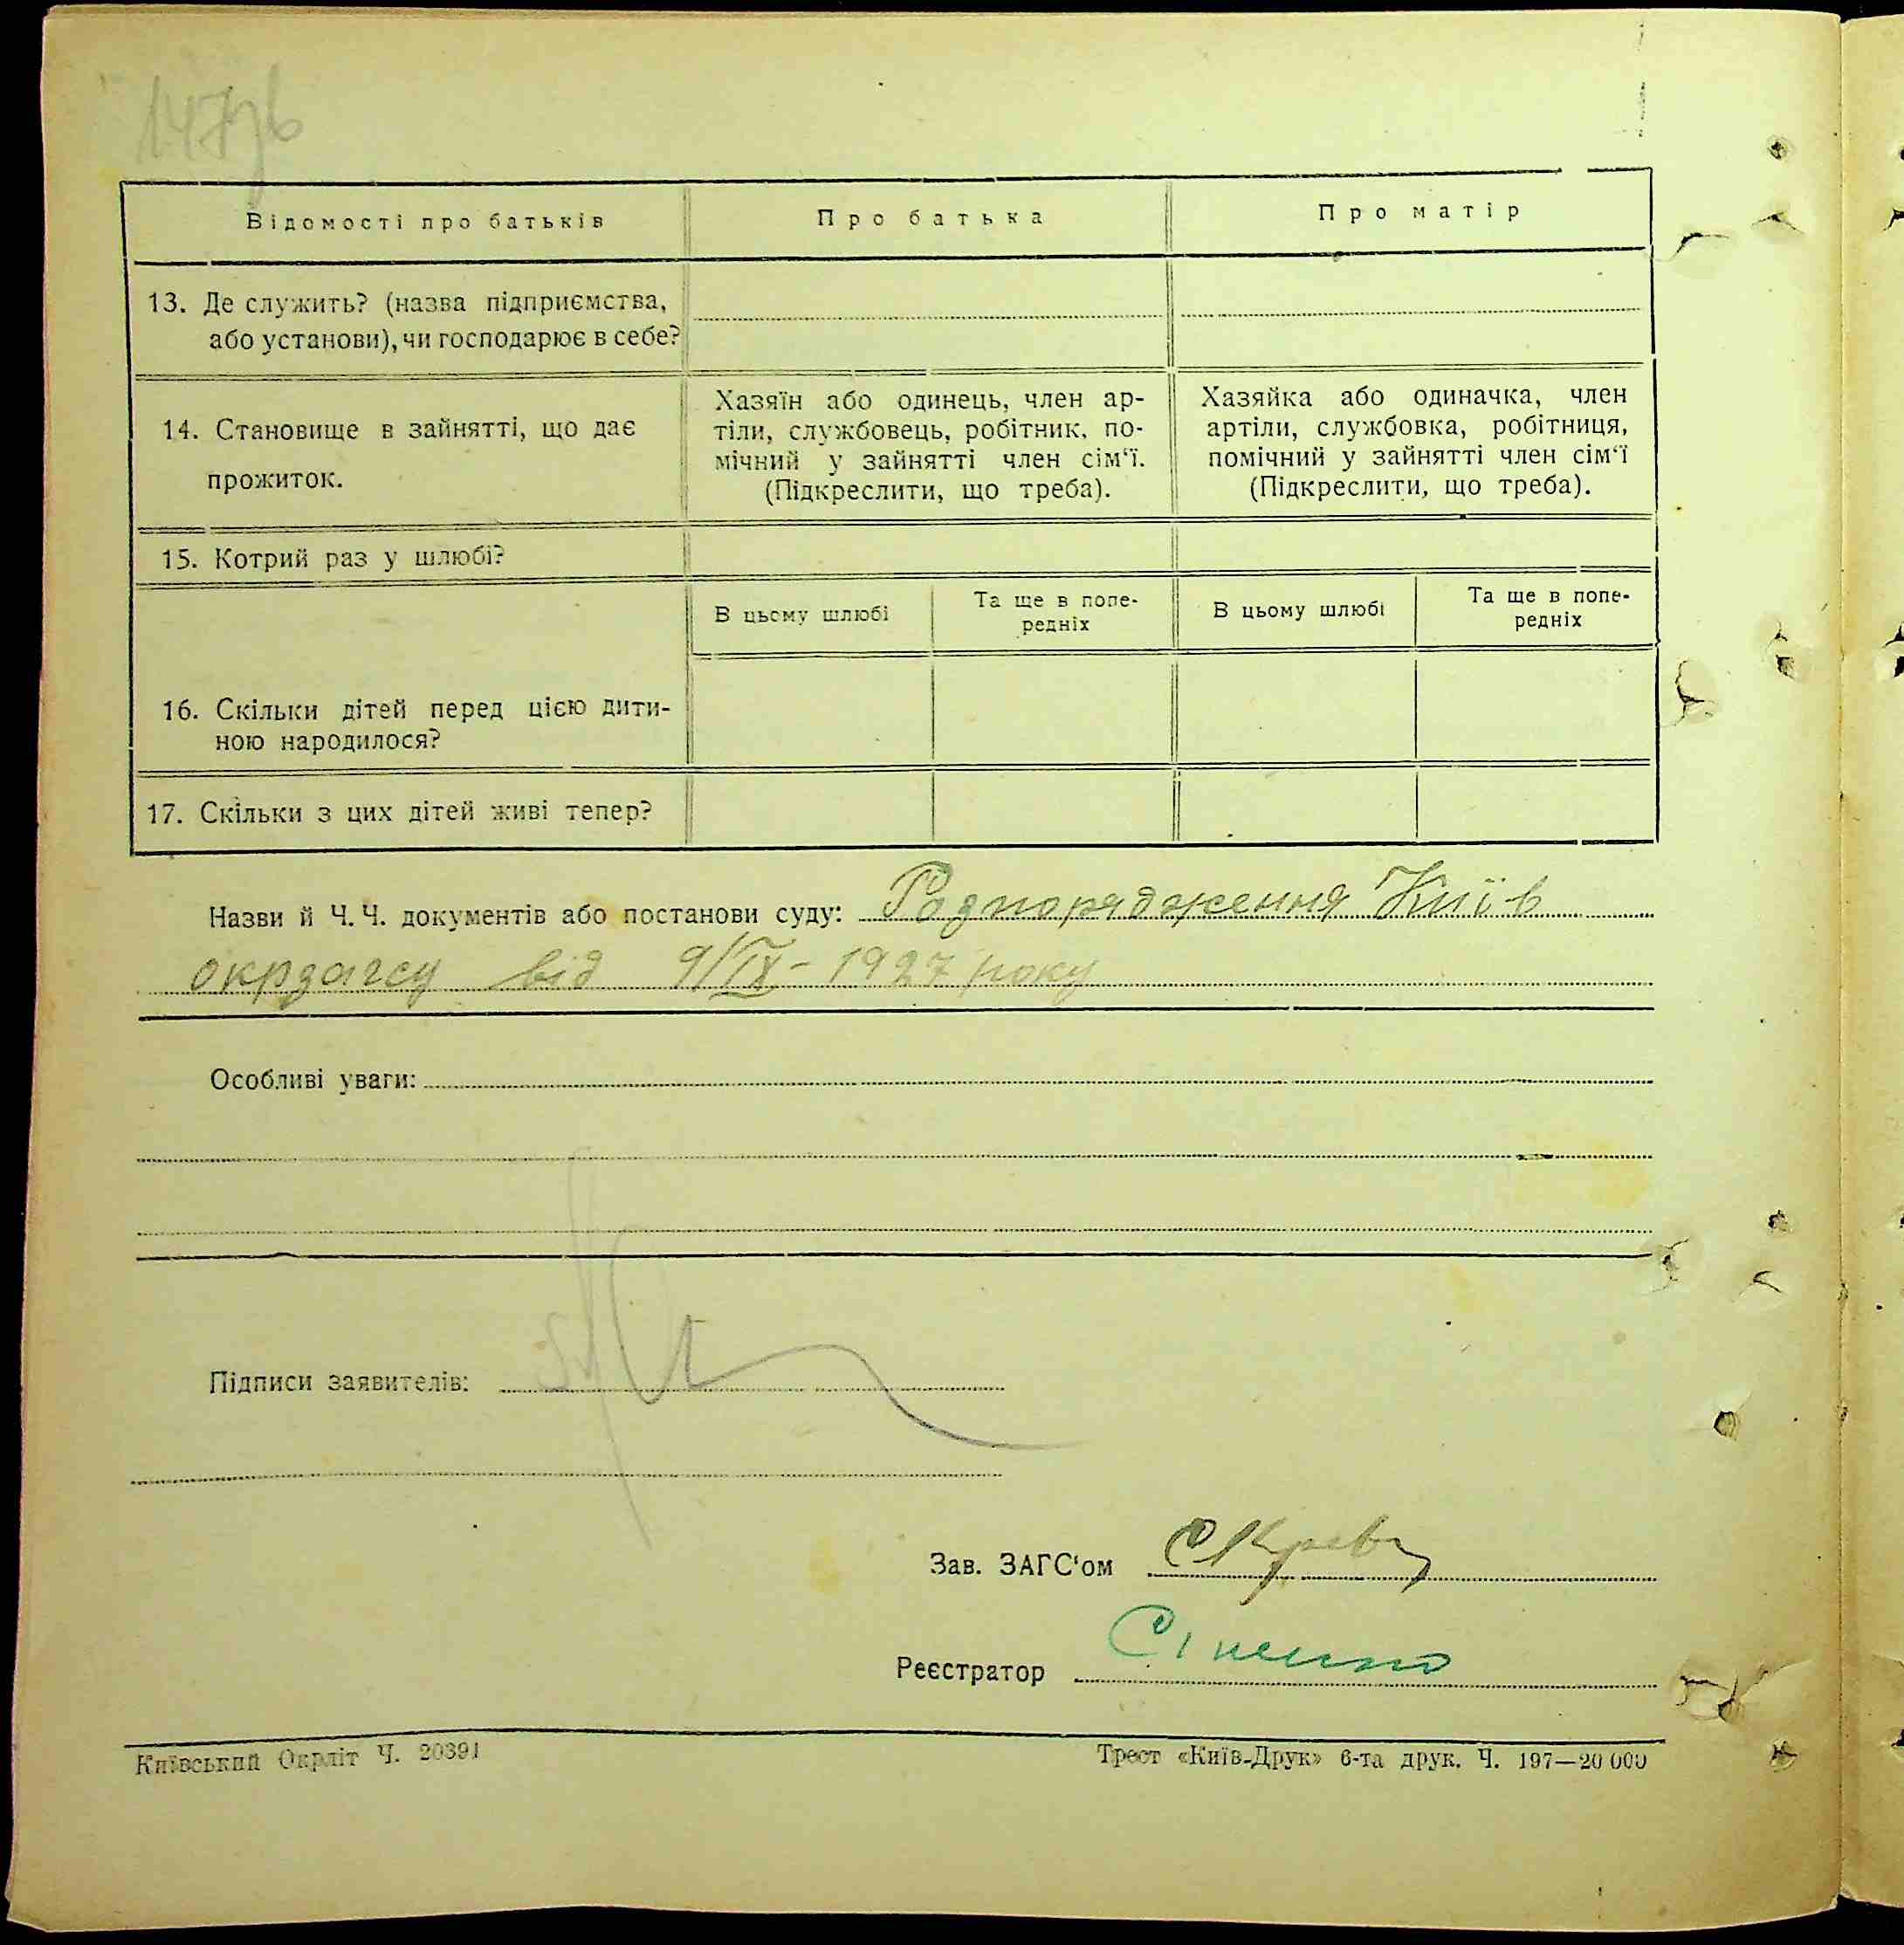 Відомості про батьків
Про батька
Про матір
13. Де служить? (назва підприємства,
або установи), чи господарює в себе?
14. Становище в зайнятті, що дає
прожиток.
Хазяїн або одинець, член ар-
тіли, службовець, робітник, по-
мічний у зайнятті член сім‘ї.
(Підкреслити, що треба).
Хазяйка або одиначка, член
артіли, службовка, робітниця,
помічний у зайнятті член сім‘ї
(Підкреслити, що треба).
15. Котрий раз у шлюбі?
В цьому шлюбі
Та ще в попе-
редніх
В цьому шлюбі
Та ще в попе-
редніх
16. Скільки дітей перед цією дити-
ною народилося?
17. Скільки з цих дітей живі тепер?
Назви й Ч. Ч. документів або постанови суду: Розпорядження Київ
окрзагсу від 9/IX - 1927 року
Особливі уваги:
Підписи заявителів:
Зав. ЗАГС‘ом
Реєстратор
Київський Окрліт Ч. 20391
Трест «Київ-Друк» 6-та друк. Ч. 197—20 000